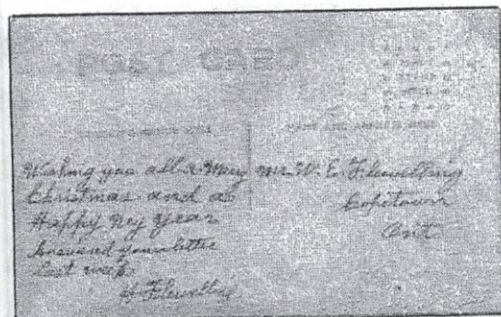 POST CARD
Wishing you all a Merry
Christmas and a
Happy Ney Year
Answered your letter
last week
H Flewelling
Mr. W. E. Flewelling
Copetown
Ont